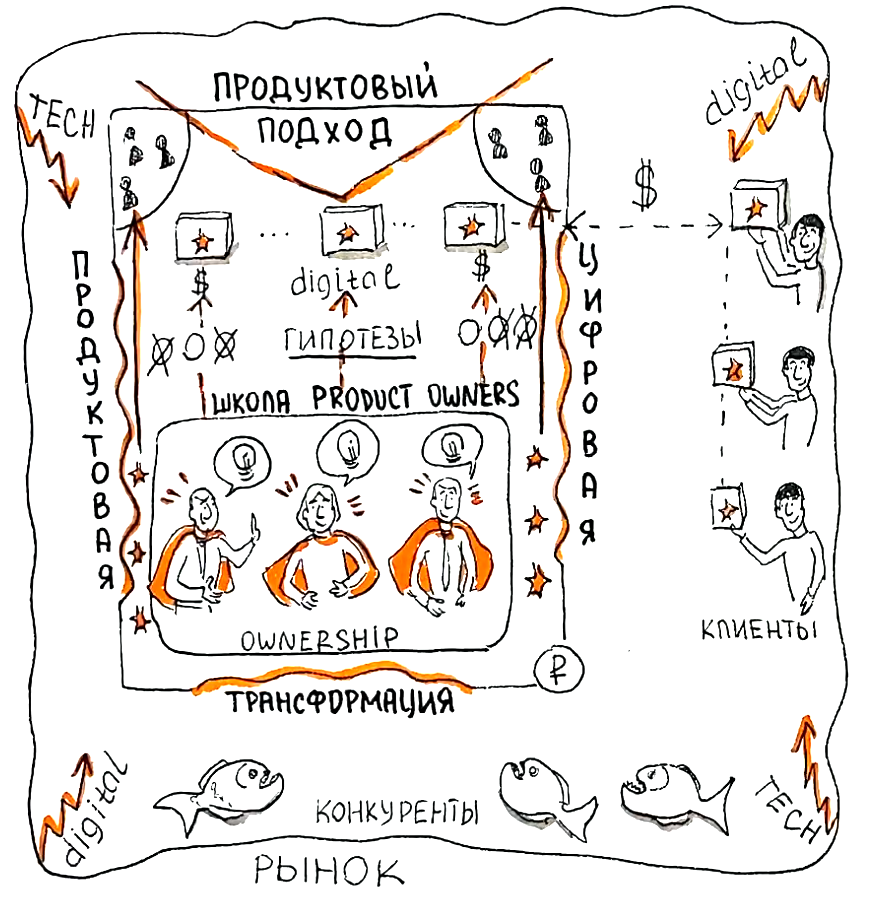 ПРОДУКТОВЫЙ
ПОДХОД
TECH
digital
$
$
digital
$
ГИПОТЕЗЫ
ПРОДУКТОВАЯ
ЦИФРОВАЯ
ШКОЛА PRODUCT OWNERS
OWNERSHIP
КЛИЕНТЫ
₽
ТРАНСФОРМАЦИЯ
digital
КОНКУРЕНТЫ
TECH
РЫНОК